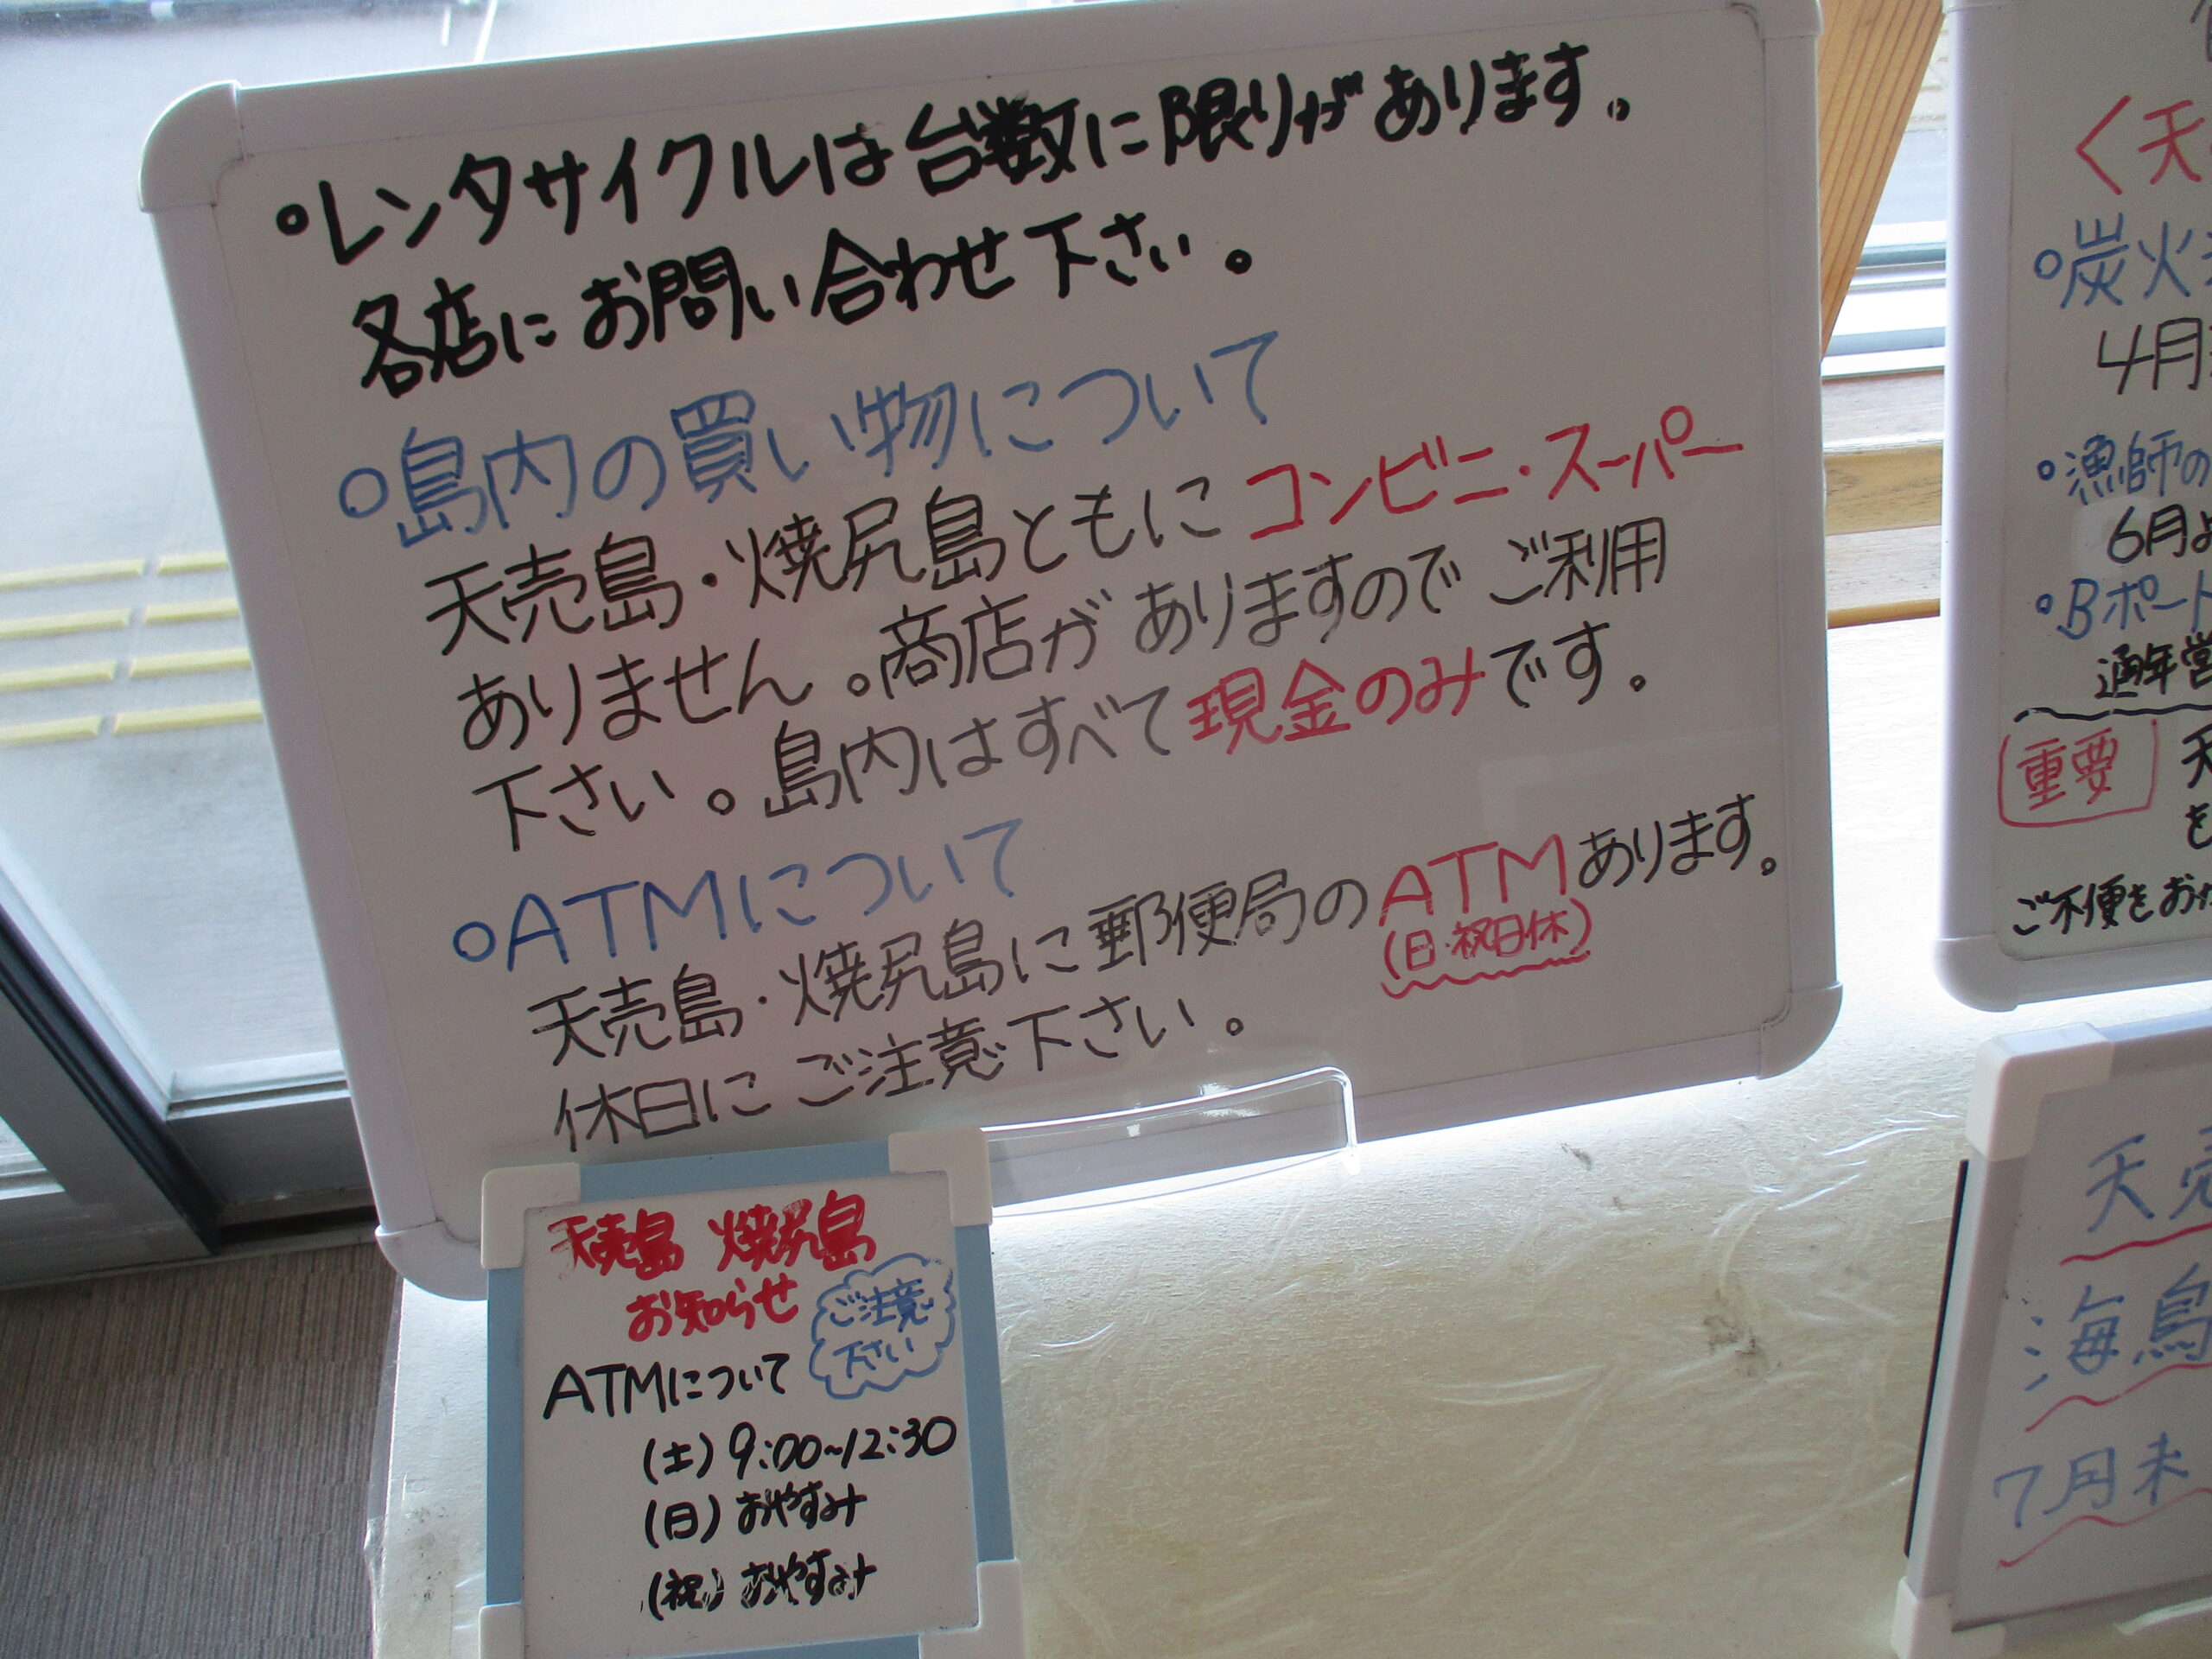 •レンタサイクルは台数に限りがあります。
各店にお問い合わせ下さい。
○島内の買い物について
天売島・焼尻島ともにコンビニ・スーパー
ありません。商店がありますのでご利用
下さい。島内はすべて現金のみです。
○ATMについて
天売島・焼尻島に郵便局のATMあります。
(日・祝日休)
休日にご注意下さい。
天売島 焼尻島
お知らせ
ご注意
下さい
ATMについて
(土) 9:00~12:30
(日) おやすみ
(祝) おやすみ
〈天
○炭火
4月
•漁師の
6月よ
•Bポート
通年営
重要
天
を
ご不便をお
天売
海鳥
7月末